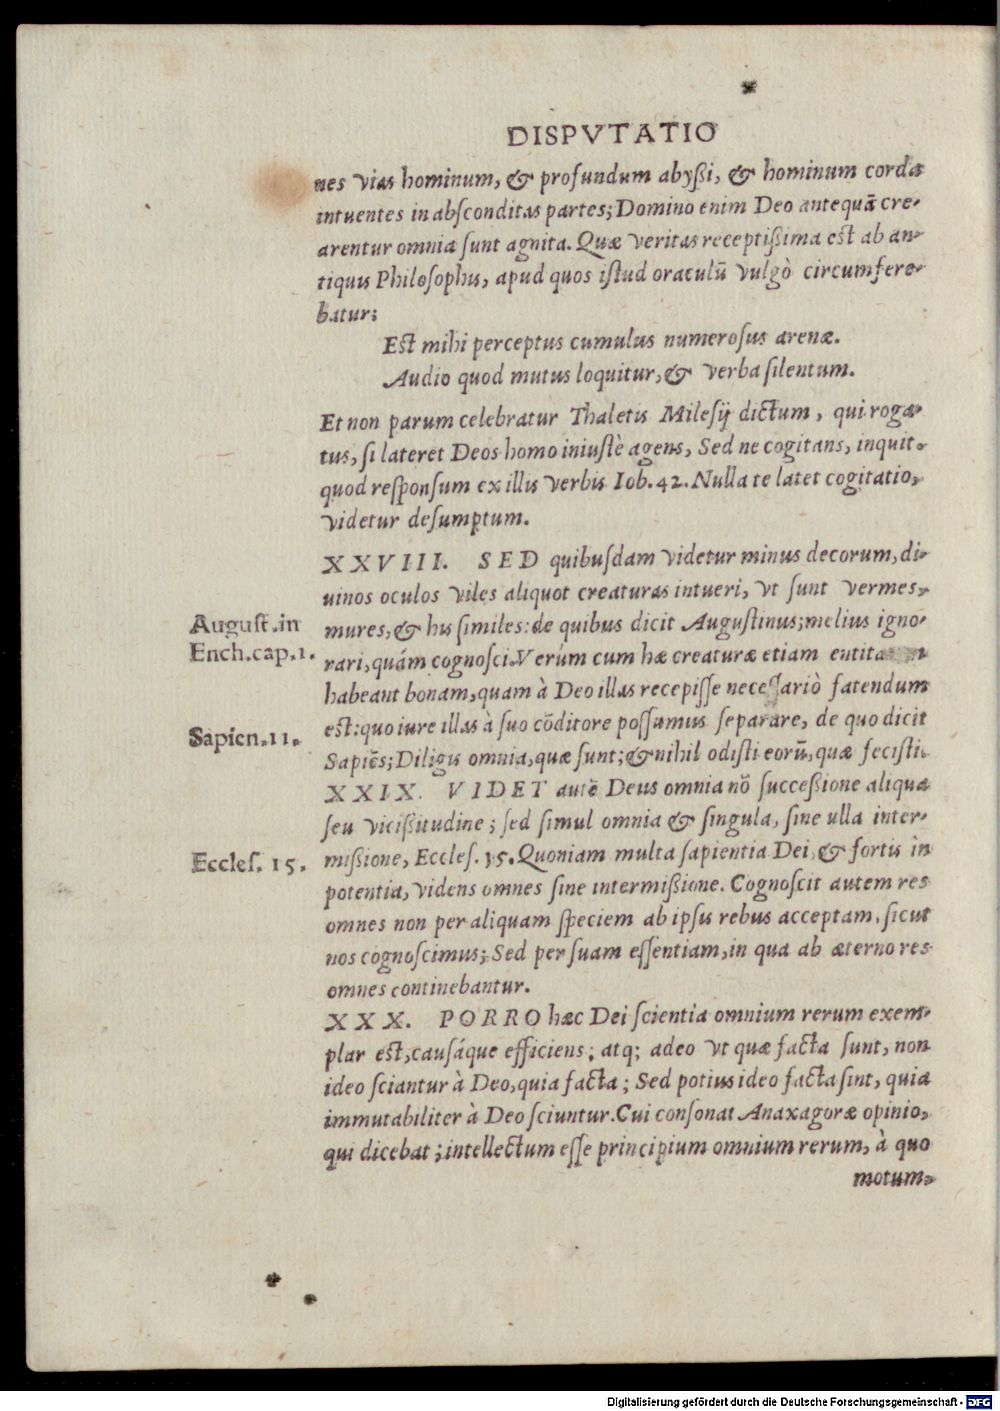 DISPVTATIO
nes vias hominum, & profundum abyßi, & hominum corda
intuentes in absconditas partes; Domino enim Deo antequā cre-
arentur omnia sunt agnita. Quæ veritas receptißima est ab an-
tiquis Philosophis, apud quos istud oraculū vulgò circumfere-
batur;
Est mihi perceptus cumulus numerosus arenæ.
Audio quod mutus loquitur, & verba silentum.
Et non parum celebratur Thaletis Milesij dictum, qui roga-
tus, si lateret Deos homo iniustè agens, Sed ne cogitans, inquit.
quod responsum ex illis verbis Iob. 42. Nulla te latet cogitatio,
videtur desumptum.
XXVIII. SED quibusdam videtur minus decorum, di-
uinos oculos viles aliquot creaturas intueri, vt sunt vermes,
August. in
mures, & his similes: de quibus dicit Augustinus; melius igno-
Ench. cap. 1.
rari, quám cognosci. Verúm cum hæ creaturæ etiam
habeant bonam, quam à Deo illas recepisse necessariò fatendum
Sapien. 11.
est: quo iure illas à suo cōditore possumus separare, de quo dicit
Sapiēs; Diligis omnia, quæ sunt; & nihil odisti eorū, quæ fecisti.
XXIX. VIDET autē Deus omnia nō succeßione aliqua
seu vicißitudine; sed simul omnia & singula, sine ulla inter-
Eccles. 15.
mißione, Eccles. 15. Quoniam multa sapientia Dei, & fortis in
potentia, videns omnes sine intermißione. Cognoscit autem res
omnes non per aliquam speciem ab ipsis rebus acceptam, sicut
nos cognoscimus; Sed per suam essentiam, in qua ab æterno res
omnes continebantur.
XXX. PORRO hæc Dei scientia omnium rerum exem-
plar est, causáque efficiens; atq; adeo vt quæ facta sunt, non
ideo sciantur à Deo, quia facta; Sed potius ideo facta sint, quia
immutabiliter à Deo sciuntur. Cui consonat Anaxagoræ opinio,
qui dicebat; intellectum esse principium omnium rerum, à quo
motum,
Digitalisierung gefördert durch die Deutsche Forschungsgemeinschaft - DFG